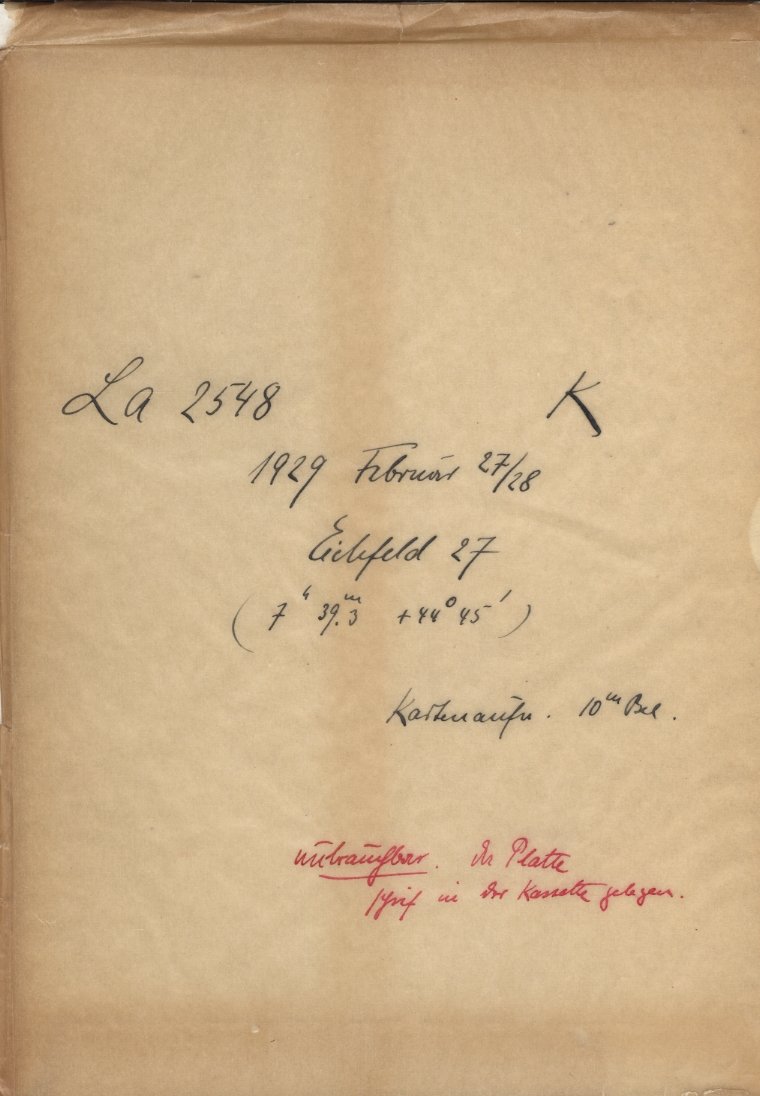 La 2548 K
1929 Februar 27/28
Eichfeld 27
(7ʰ 39.ᵐ3 +44° 45′)
Kartenaufn. 10ᵐ Bel.
unbrauchbar. Platte
schief in der Kassette gelegen.